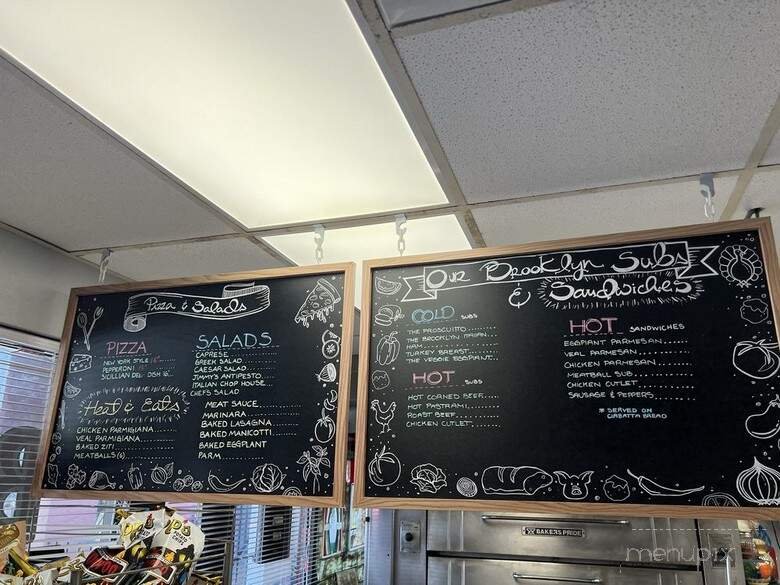 Pizza & Salads
PIZZA
NEW YORK STYLE
PEPPERONI
SICILIAN DEL. DISH
Heat & Eats
CHICKEN PARMIGIANA
VEAL PARMIGIANA
BAKED ZITI
MEATBALLS (6)
SALADS
CAPRESE
GREEK SALAD
CAESAR SALAD
JIMMY'S ANTIPESTO
ITALIAN CHOP HOUSE
CHEFS SALAD
MEAT SAUCE
MARINARA
BAKED LASAGNA
BAKED MANICOTTI
BAKED EGGPLANT
PARM
Our Brooklyn Subs
& Sandwiches
COLD SUBS
THE PROSCUITTO
THE BROOKLYN ITALIAN
HAM
TURKEY BREAST
THE VEGGIE EGGPLANT
HOT SUBS
HOT CORNED BEEF
HOT PASTRAMI
ROAST BEEF
CHICKEN CUTLET
HOT SANDWICHES
EGGPLANT PARMESAN
VEAL PARMESAN
CHICKEN PARMESAN
MEATBALL SUB
CHICKEN CUTLET
SAUSAGE & PEPPERS
* SERVED ON
CIABATTA BREAD
BAKERS PRIDE
menupix